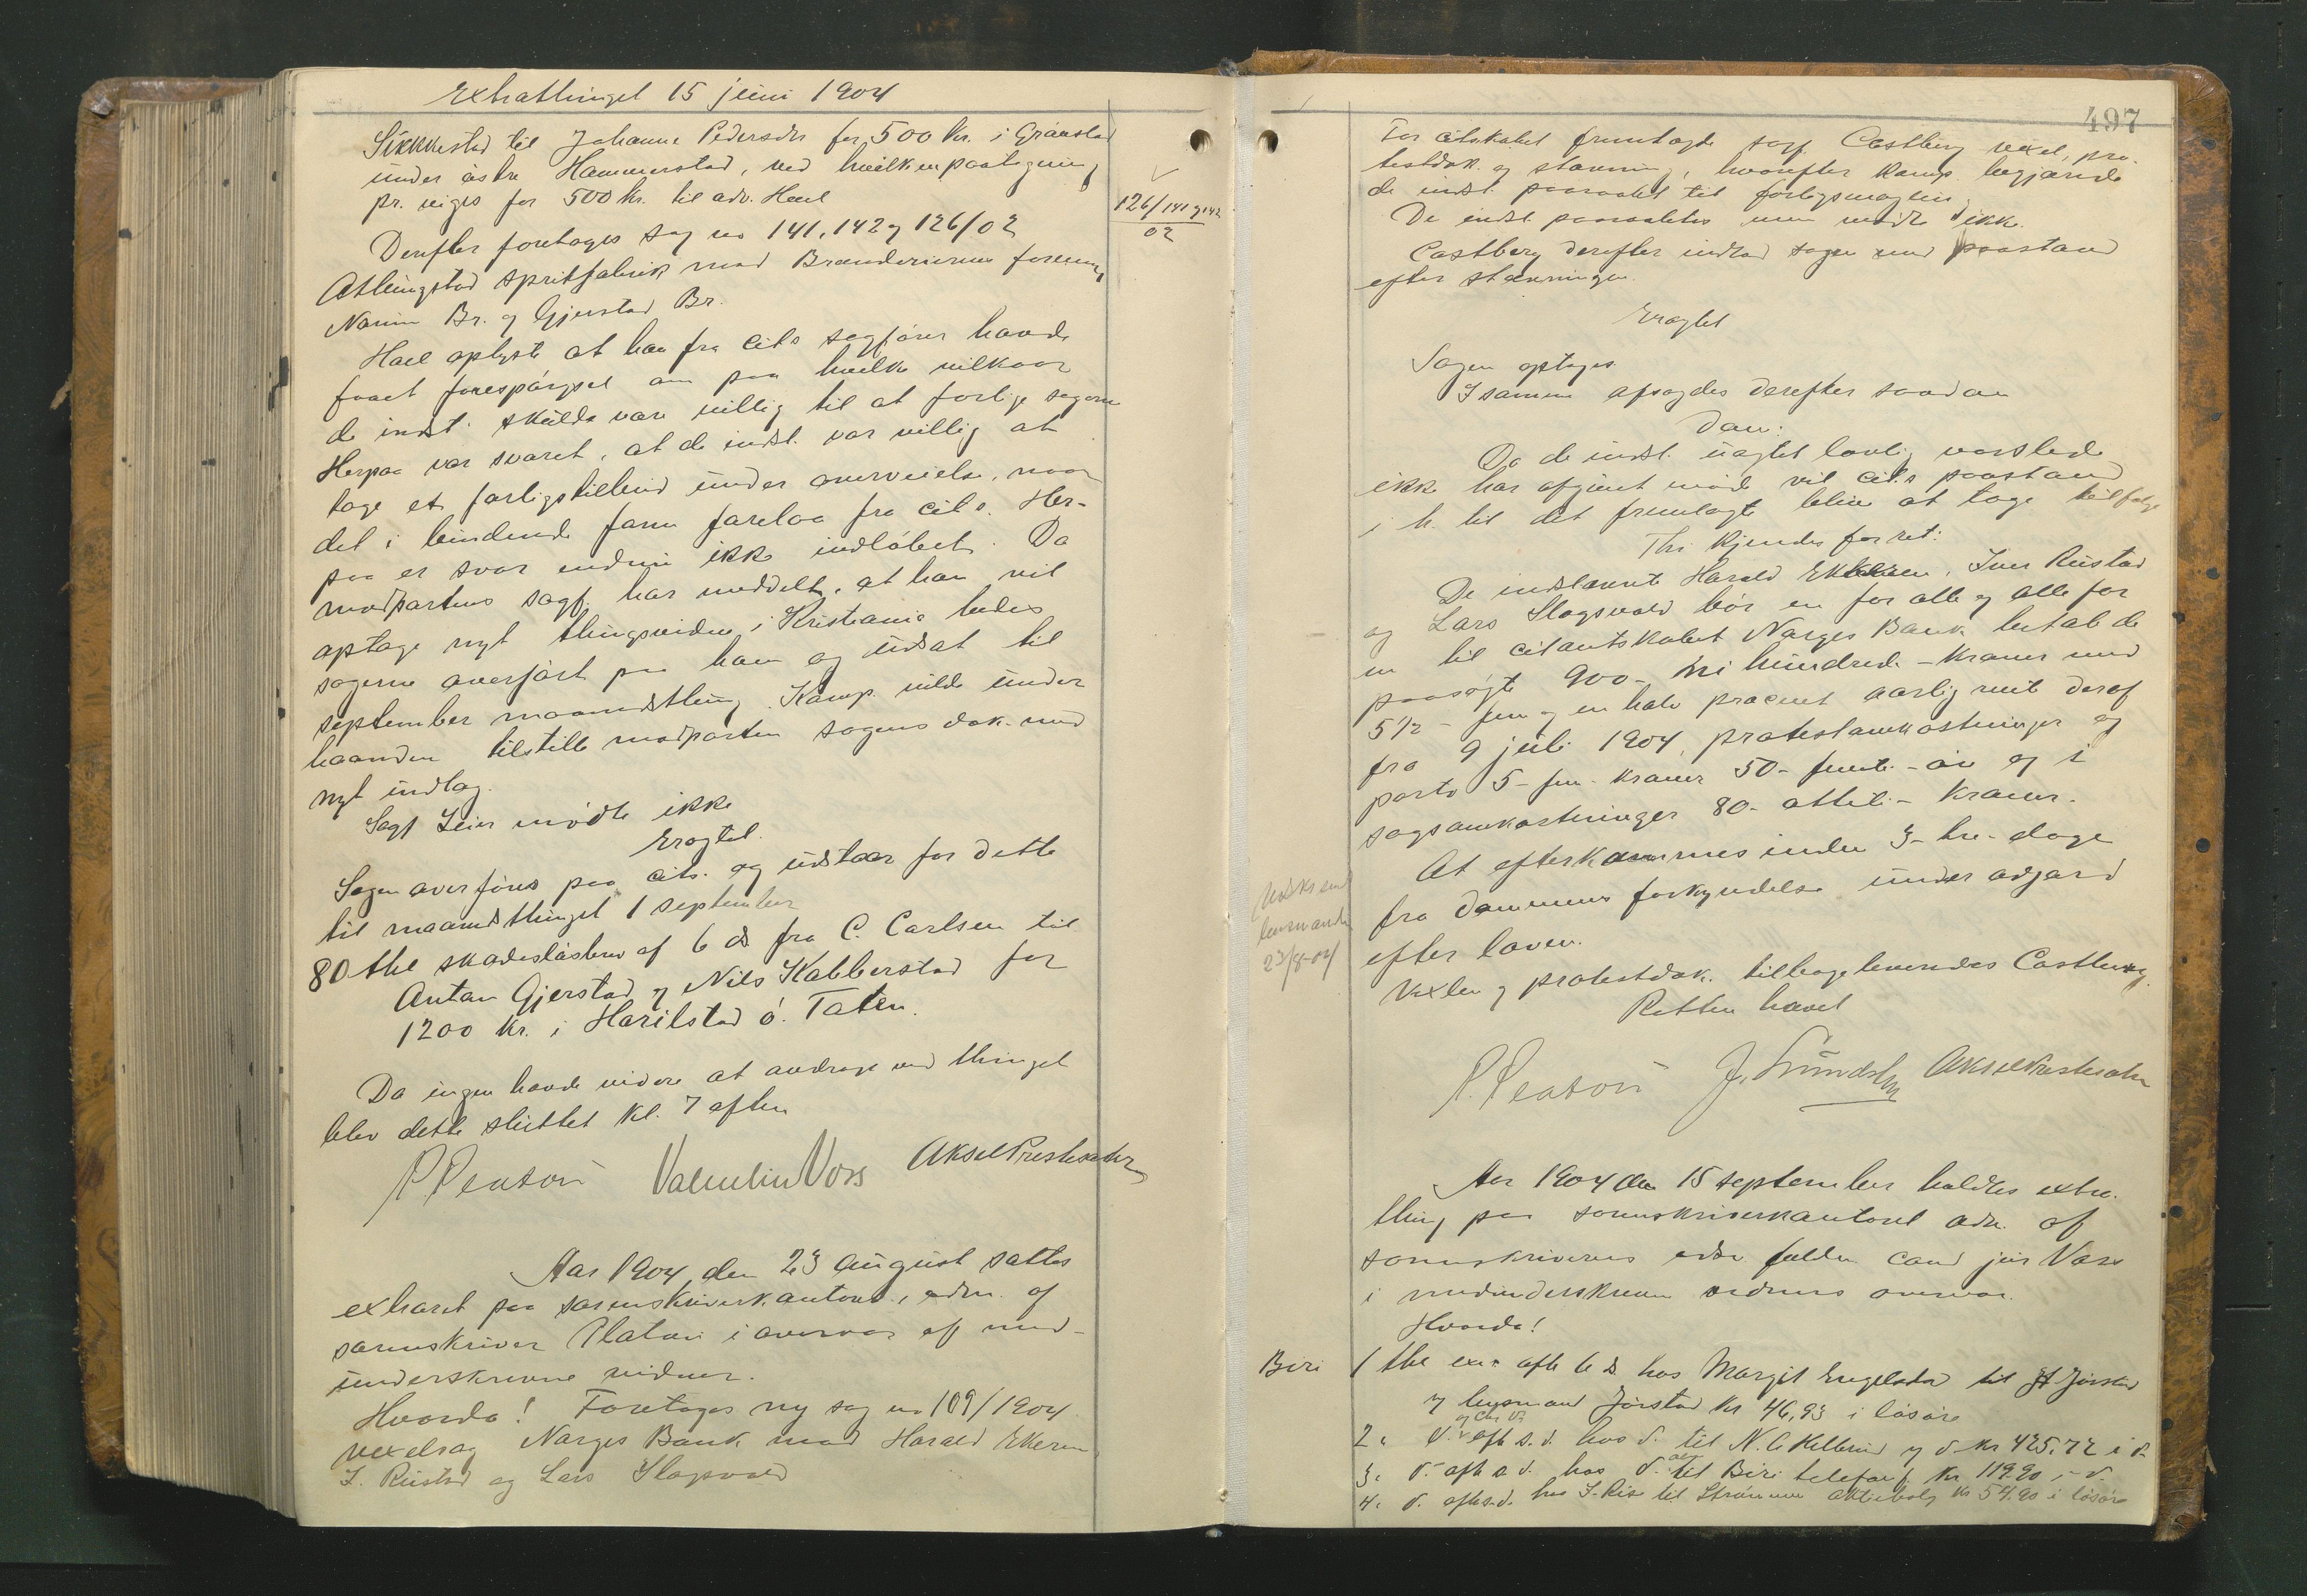 Extrathinget 15 juni 1904
Sikkestad til Johanne Pedersdtr for 500 kr. i Granstad
under østre Hammerstad, ved hvilken paategning
pr. viges for 500 kr. til adv. Hael
Derefter foretages sag no 141, 142 og 126/02
126/141 og 142
02
Athlingstad spritfabrik mod Brænderiernes forening
Narum Br. og Gjerstad Br.
Hael oplyste at han fra cits sagfører havde
faaet forespørgsel om paa hvilke vilkaar
de indst. skulde være villig til at forlige sagerne
Herpaa var svaret, at de indst. var villig at
tage et forligstilbud under overveielse, naar
det i bindende form forelaa fra cits. Her-
paa er svar endnu ikke indløbet. Da
modpartens sagf. har meddelt, at han vil
optage nyt thingsvidne i Kristiania bedes
sagerne overført paa ham og udsat til
september maanedsthing. Komp. vilde under
haanden tilstille modparten sagens dok. med
nyt indlæg.
Sagf Leier mødte ikke
Eragtet.
Sagen overføres paa cits. og udstaar for dette
til maanedsthinget 1 september
80 thl skadesløsbrev af 6 ds fra C. Carlsen til
Anton Gjerstad og Nils Kabberstad for
1200 kr. i Harilstad ø. Toten.
Da ingen havde videre at andrage ved thinget
blev dette sluttet kl. 7 eften
P Platou Valentin Voss Aksel Prestesæter
Aar 1904, den 23 august sattes
extraret paa sorenskriverkontoret, adm. af
sorenskriver Platou i overvær af med-
underskrevne vidner.
Hvorda! Foretages ny sag no 109/1904
vexelsag Norges Bank mod Harald Ekeren
I. Rustad og Lars Slagsvold
497
For citskabet fremlagde sagf. Castberg vexel, pro-
testdok. og stævning, hvorefter komp. begjærede
de indst. paaraabt til forligsmægling
De indst. paaraabtes men mødte ikke.
Castberg derefter indlod sagen med paastand
efter stævningen.
Eragtet
Sagen optages
I samme afsagdes derefter saadan
Dom:
Da de indst. uagtet lovlig varslede
ikke har afgivet møde vil cits paastand
i h. til det fremlagte blive at tage tilfølge
Thi kjendes for ret:
De indstævnte Harald Ekeren, Iver Rustad
og Lars Slagsvold bør en for alle og alle for
en til citantskabet Norges Bank betale de
paasøgte 900 - ni hundrede - kroner med
5 1/2 - fem og en halv procent aarlig rente deraf
fra 9 juli 1904, protestomkostninger og
porto 5 - fem - kroner 50 - femti - øre og i
sagsomkostninger 80 - otti - kroner.
At efterkommes inden 3 - tre - dage
fra dommens forkyndelse under adfærd
efter loven.
Udskr send
lensmanden
23/8-04
Vexlen og protestdok. tilbageleveredes Castberg.
Retten hævet
P. Platou J. Sundsby Aksel Prestesæter
Aar 1904 den 15 september holdtes extra-
thing paa sorenskriverkontoret adm. af
sorenskriverens edsv. fuldm. cand jur Voss
i medunderskrevne vidners overvær.
Hvorda!
Biri 1 thl exr. afh 6 ds hos Margit Engelstad til Jørstad
og husmand Jørstad kr 46,93 i løsøre
2. d. afh s.d. hos d. til N. C. Kelberud og d. kr 425,72 i d.
3. d. afh s.d. hos d. til Biri telefonf. kr 119.90 i d.
4. d. afh s.d. hos I. Rise til Strømmen aktiebolag kr 54.90 i løsøre